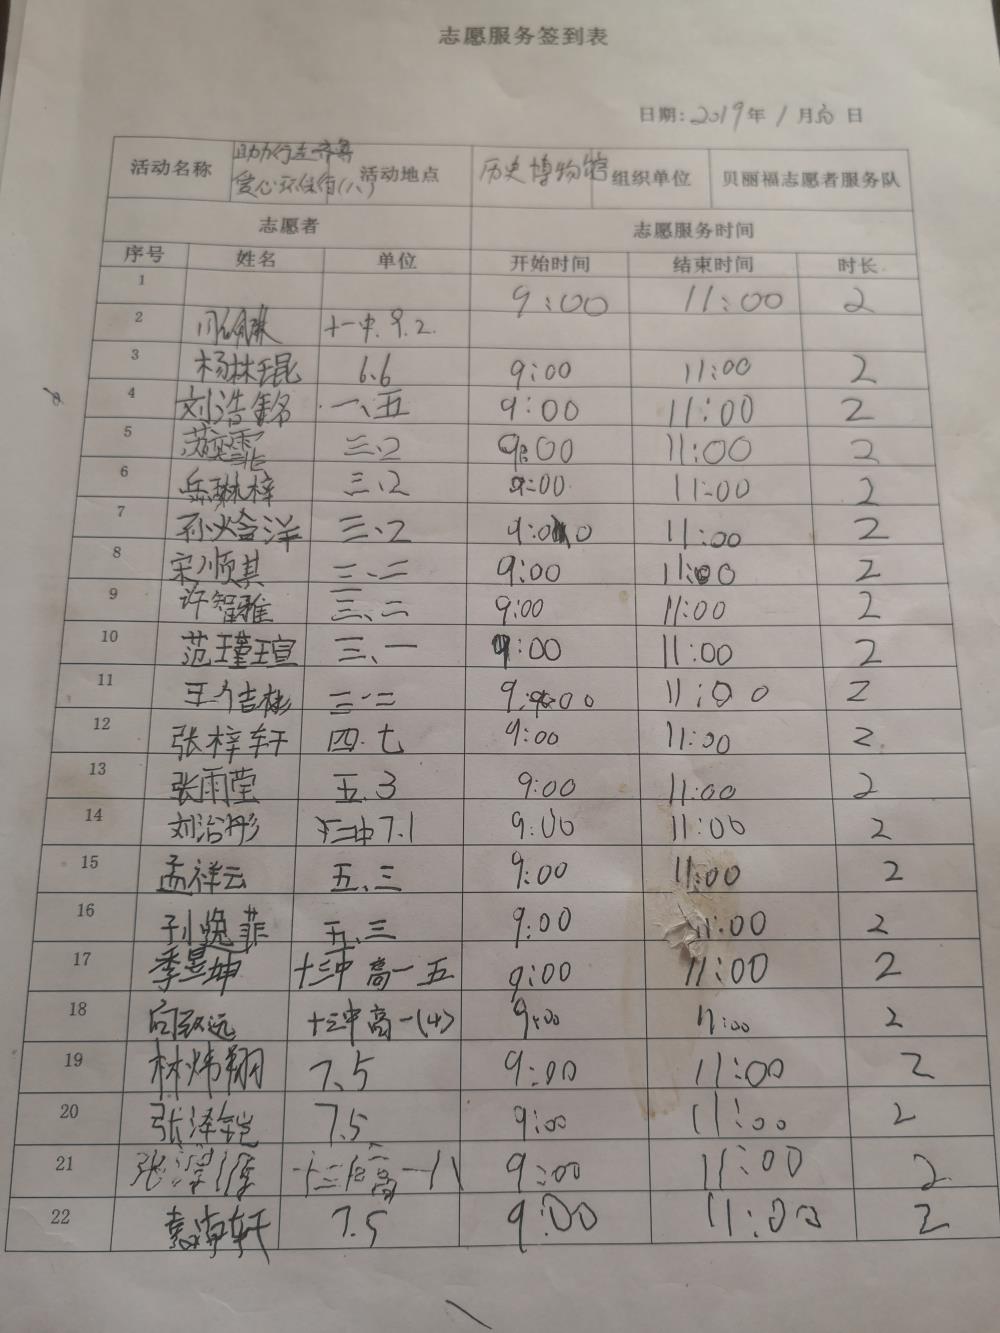 志愿服务签到表
日期: 2019年1月30日
活动名称 助力行走齐鲁 爱心环保行(八) 活动地点 历史博物馆 组织单位 贝丽福志愿者服务队
志愿者 志愿服务时间
序号 姓名 单位 开始时间 结束时间 时长
1 9:00 11:00 2
2 十一中.9.2.
3 杨林琨 6.6 9:00 11:00 2
4 刘浩铭 一、五 9:00 11:00 2
5 三.2 9:00 11:00 2
6 岳琳梓 三.2 9:00 11:00 2
7 三.2 9:00 11:00 2
8 宋顺其 三、二 9:00 11:00 2
9 许智雅 三、二 9:00 11:00 2
10 范瑾瑄 三、一 9:00 11:00 2
11 三·二 9:00 11:00 2
12 张梓轩 四.七 9:00 11:00 2
13 张雨莹 五.3 9:00 11:00 2
14 刘治彤 十二中7.1 9:00 11:00 2
15 孟祥云 五、三 9:00 11:00 2
16 孙逸菲 五、三 9:00 11:00 2
17 季昱坤 十三中 高一五 9:00 11:00 2
18 十三中高一(4) 9:00 11:00 2
19 林炜翔 7.5 9:00 11:00 2
20 张泽铠 7.5 9:00 11:00 2
21 9:00 11:00 2
22 袁海轩 7.5 9:00 11:00 2